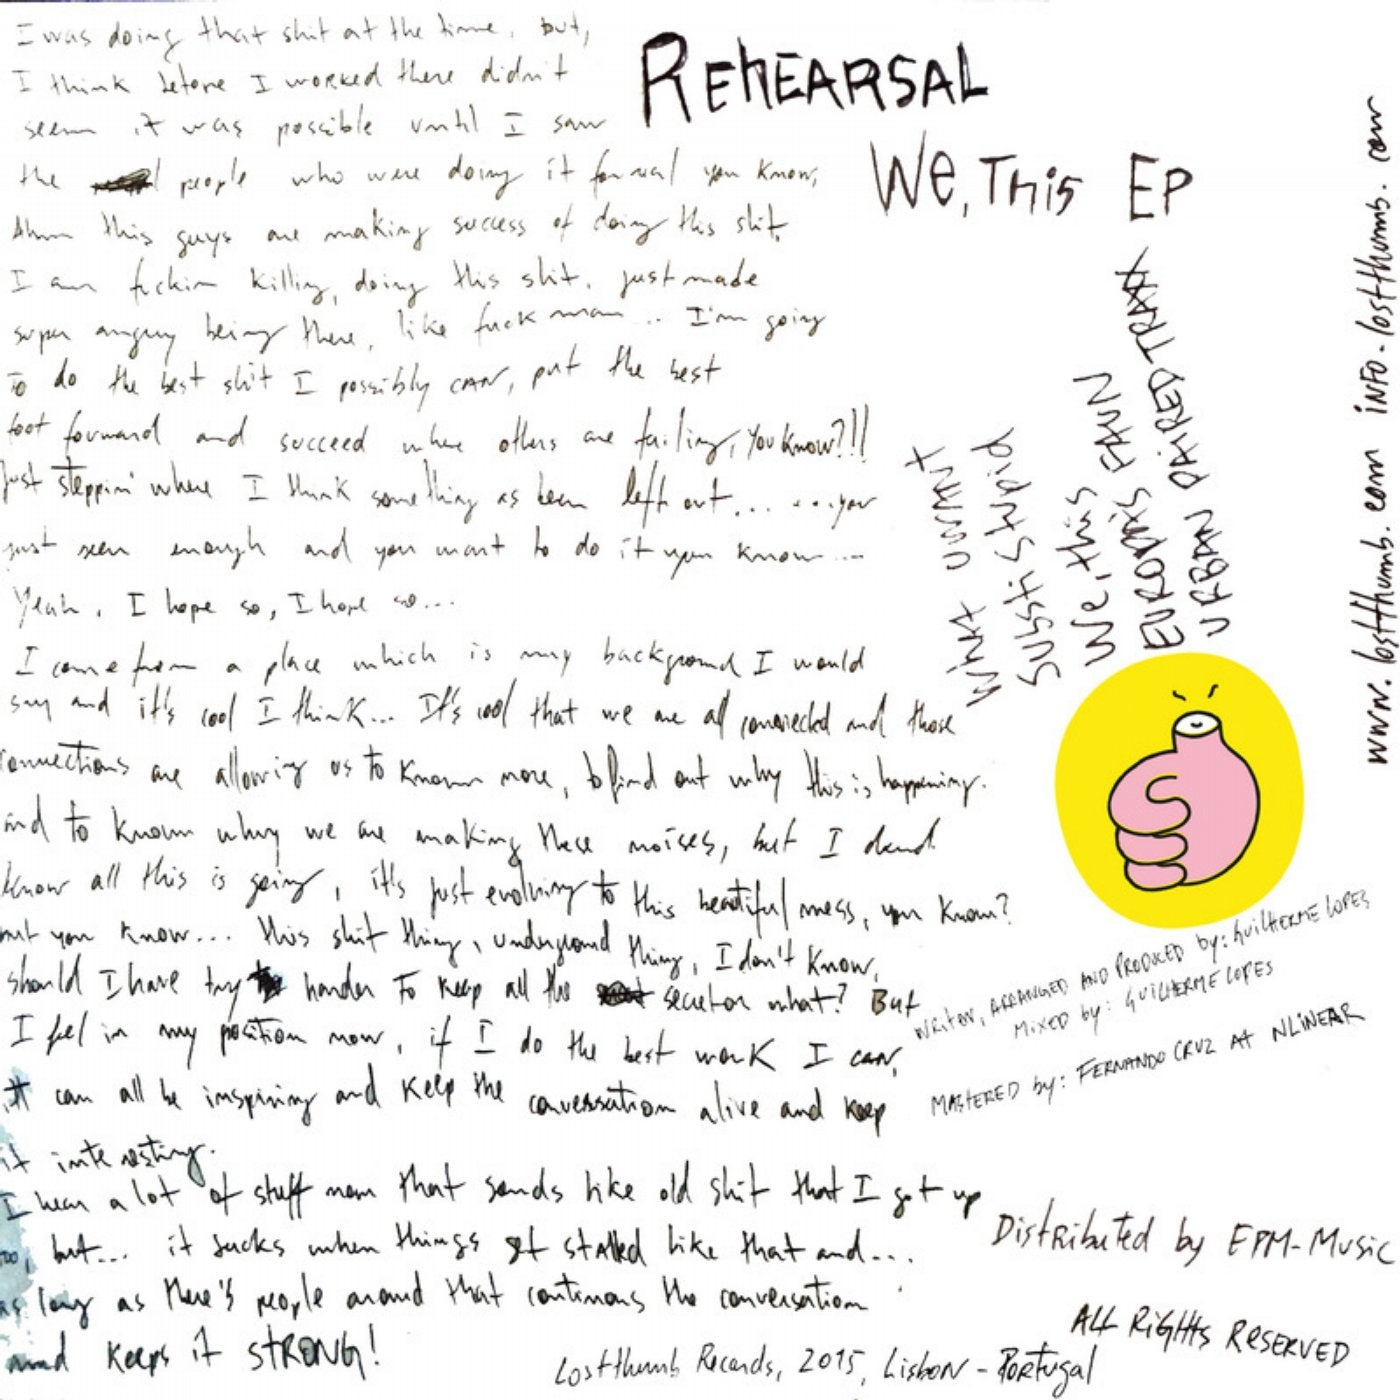 I was doing that shit at the time. but,
I think before I worked there didn't
seem it was possible until I saw
the people who were doing it for real you know,
Ahmm this guys are making success of doing this shit,
I am fuckin killing, doing this shit. just made
super angry being there, like fuck man... I'm going
to do the best shit I possibly can, put the best
foot forward and succeed where others are failing, you know?!!
Just steppin' where I think something as been left out... ...you
just seen enough and you want to do it you know...
Yeah, I hope so, I hope so...
I come from a place which is my background I would
say and it's cool I think... It's cool that we are all connected and those
connections are allowing us to known more, to find out why this is happening.
and to known why we are making these noises, but I dend
know all this is going, it's just evolving to this beautiful mess, you know?
but you know... this shit thing, underground thing, I don't know,
should I have try harder to keep all the secret or what? But
I feel in my position now, if I do the best work I can,
it can all be inspiring and keep the conversation alive and keep
it interesting.
I hear a lot of stuff now that sonds like old shit that I got up
too, but... it sucks when things get stalled like that and...
as long as there's people around that continous the conversation
and keeps it STRONG!
REHEARSAL
We, This EP
WHAT UWANT
SUSSTI STUPID
We, this FAWN
PAIRED TRAXX
URBAN
www.lostthumb.com INFO-lostthumb.com
WRITTEN, ARRANGED AND PRODUCED by: GUILHERME LOPES
MIXED by: GUILHERME LOPES
MASTERED by: FERNANDO CRUZ AT NLINEAR
Distributed by EPM-Music
ALL RIGHTS RESERVED
Lostthumb Records, 2015, LISBON - PORTUGAL